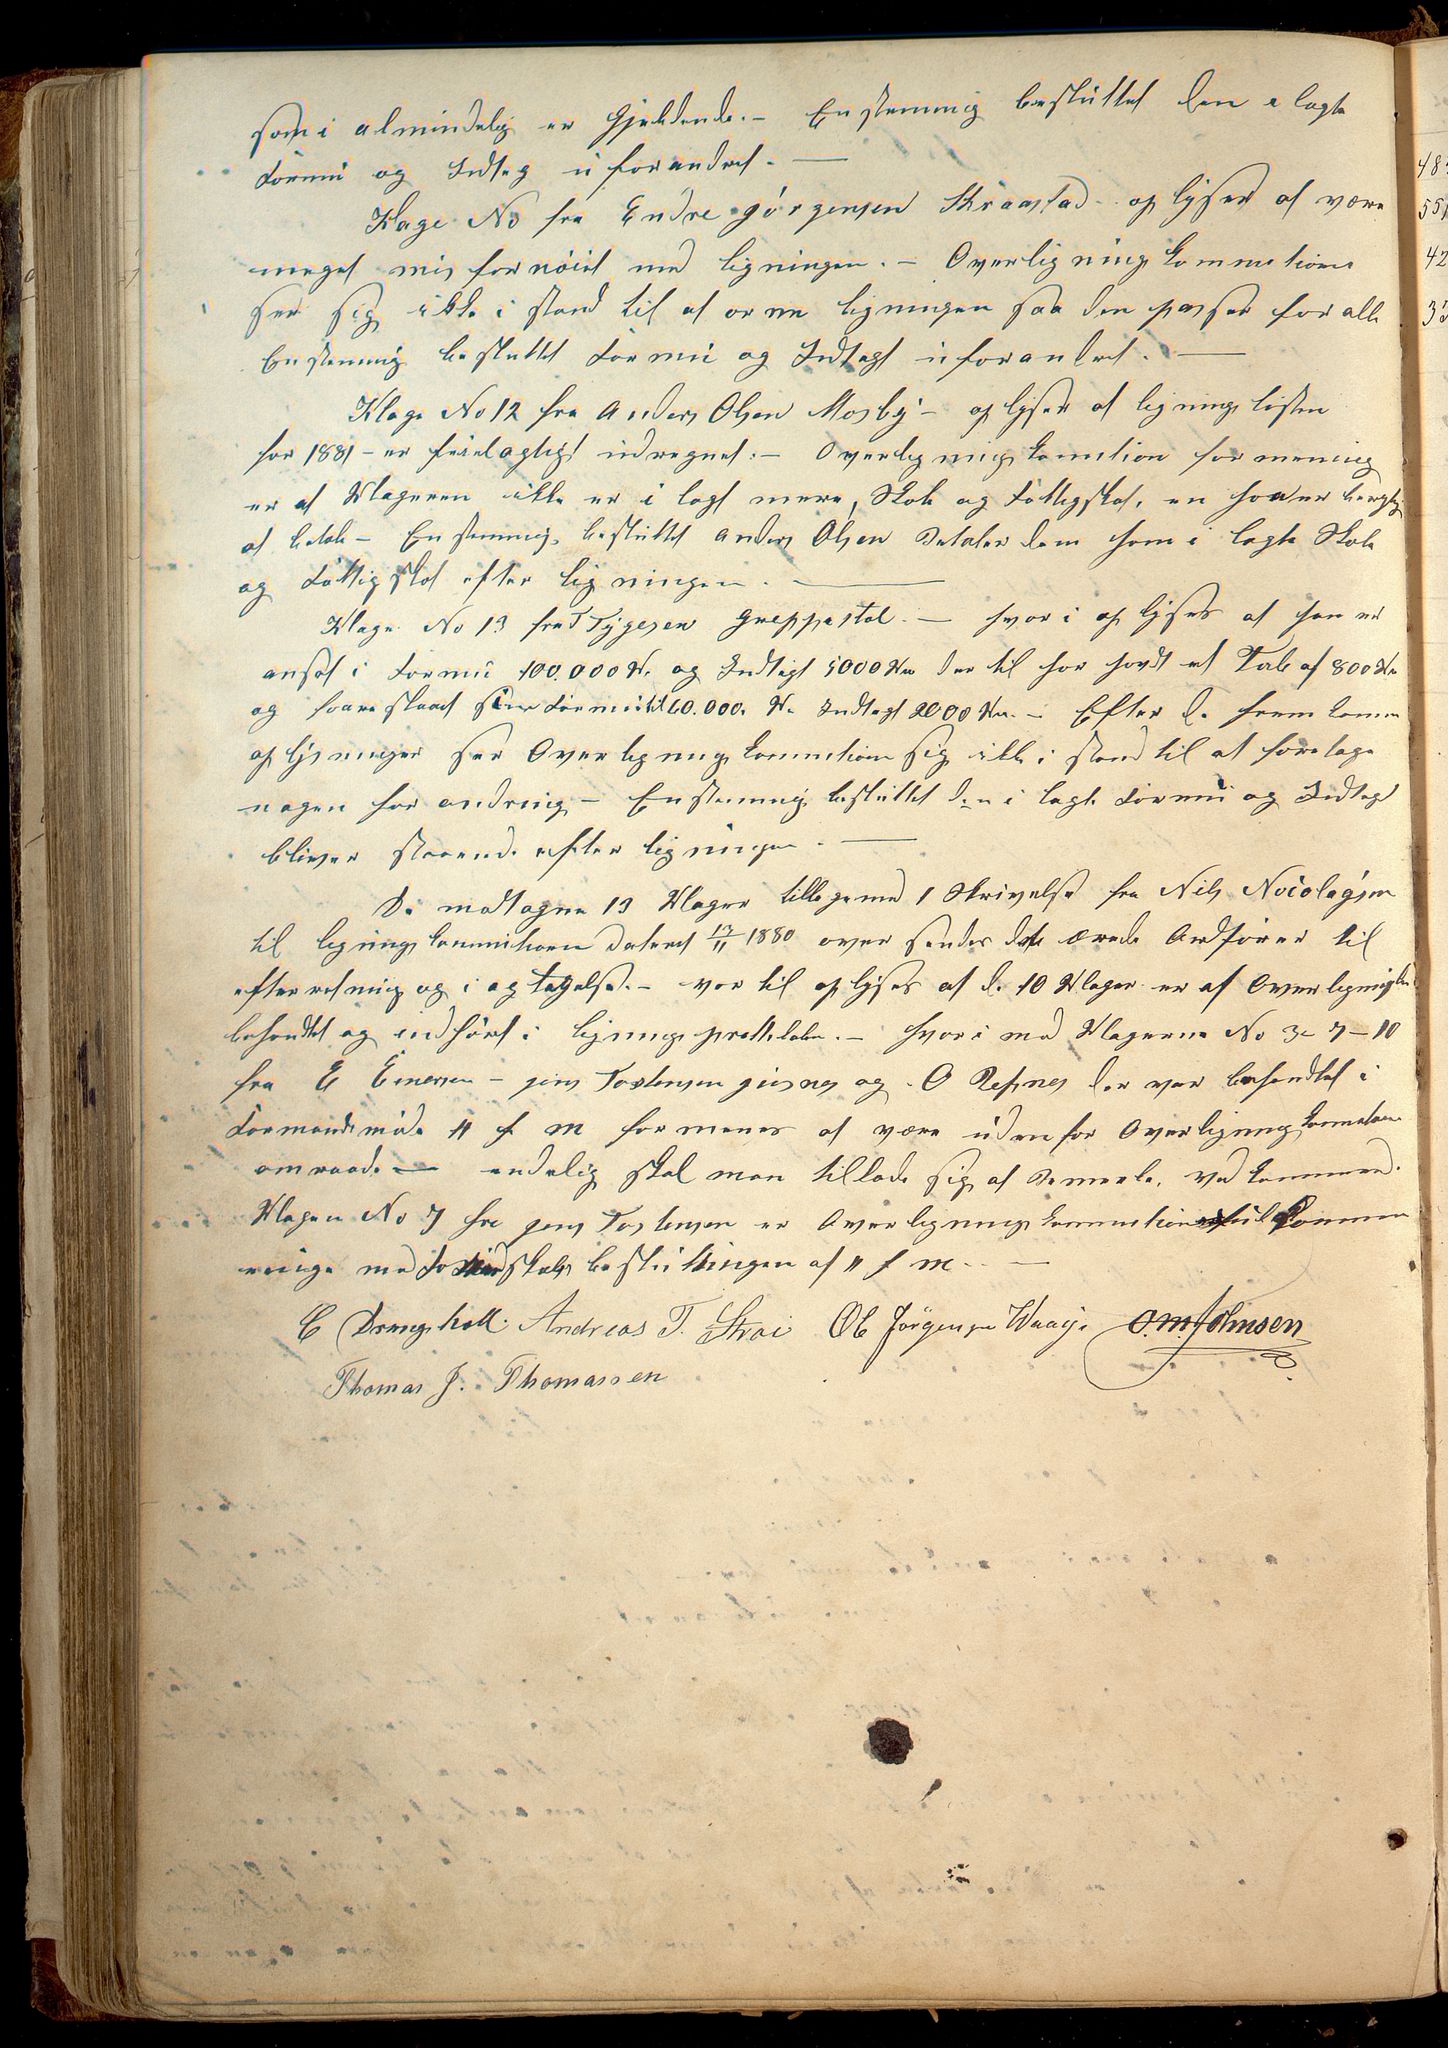 som i almindelig er Gjeldende. - Enstemmig besluttet den i lagte
Formu og Indtæg uforandret. -
Klage No fra Endre Jörgensen Skraastad - oplyser at være
meget misfornöiet med ligningen. - Overligningskommitionen
ser sig ikke i stand til at orne ligningen saa den passer for alle
Enstemmig besluttet Formu og Indtægt uforandret. -
Klage No 12 fra Anders Olsen Mosby - oplyser at lignings listen
for 1881 - er feilagtigt udregnet. - Overlignings komition formening
er at Klageren ikke er i lagt mere, Skole og Fattigskat, en han er
at betale - Enstemmig besluttet Anders Olsen Betaler den ham i lagte Skole
og Fattigskat efter ligningen. -
Klage No 13 fra T Tygesen Greppestöl. - hvor i oplyses at han er
ansat i Formu 100.000 Kr og Indtægt 5000 Kr der til har havdt et Tab af 800 Kr
og foreslaar sin Formu til 60.000. Kr Indtægt 2000 Kr. - Efter de fremkomne
oplysninger ser Overlignings kommitionen sig ikke i stand til at foretage
nogen forandring - Enstemmig besluttet den i lagte Formu og Indtægt
bliver staaende efter ligningen. -
De modtagne 13 Klager tilligemed 1 Skrivelse fra Nils Nicolaysen
til lignings kommitionen Dateret 17/11 1880 oversendes dete ærede Ordförer til
efterretning og i agtagelse. - vor til oplyses at de 10 Klager er af Overlignings
behandlet og indfört i lignings prottekolen. - hvor i mod Klagerne No 3 - 7 - 10
fra E Einersen - Jens Tostensen og O Refsnes der var behandlet i
Formandsmöde 11 f m formenes at være udenfor Overlignings kommitionens
omraade - endelig skal man tillade sig at Bemerke, ved kommende
Klagen No 7 fra Jens Tostensen er Overlignings kommitionen fuldkommen
enige med Formandskabs beslutningen af 11 f m. -
C Drangsholt. Andreas T. Strai Ole Jörgensen Waage O. M. Johnsen
Thomas J. Thomassen